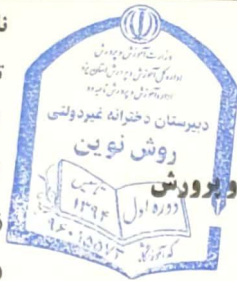 وزارت آموزش و پرورش
اداره کل آموزش و پرورش استان یزد
اداره آموزش و پرورش ناحیه دو
دبیرستان دخترانه غیردولتی
روش نوین
و پرورش
تاسیس
۱۳۹۴
دوره اول